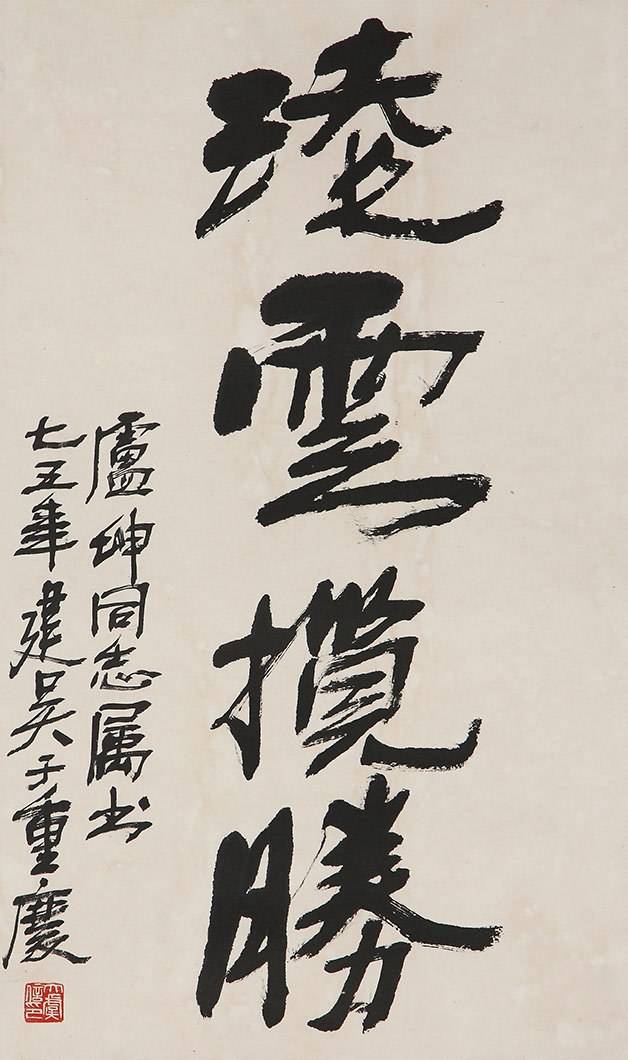 凌雲攬勝
盧坤同志属书
七五年建吴于重慶